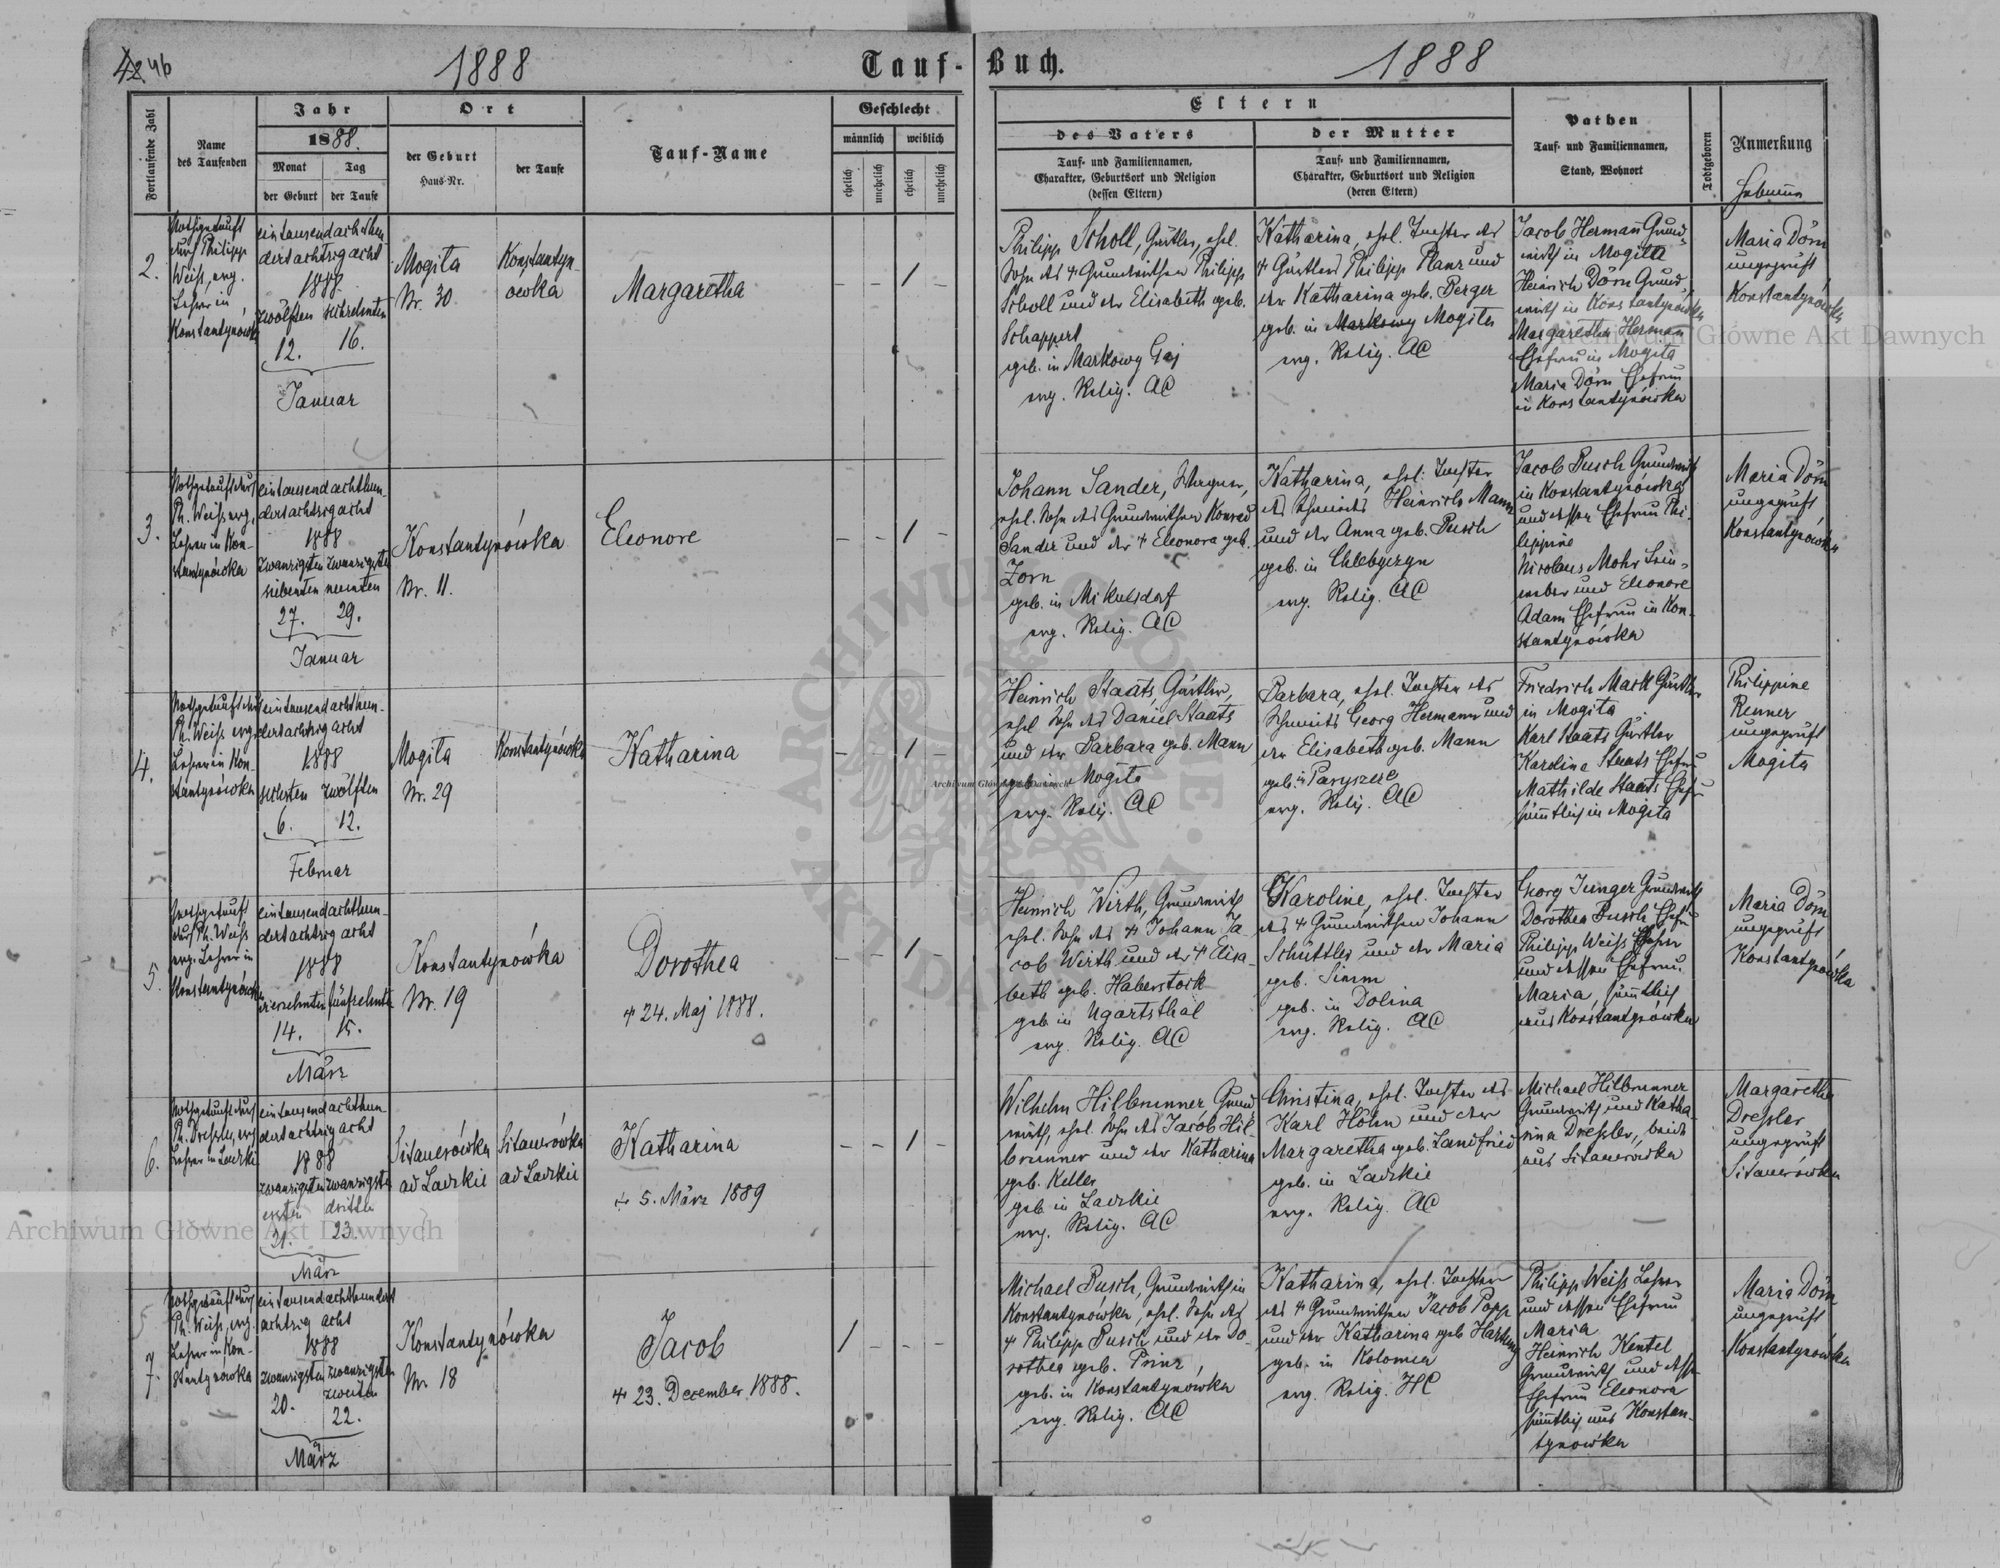 46
1888
Tauf-Buch.
1888
Fortlaufende Zahl
Name
des Taufenden
Jahr
1888.
Monat
der Geburt
Tag
der Taufe
Ort
der Geburt
Haus-Nr.
der Taufe
Tauf-Name
Geschlecht
männlich
weiblich
ehelich
unehelich
ehelich
unehelich
Eltern
des Vaters
Tauf- und Familiennamen,
Charakter, Geburtsort und Religion
(dessen Eltern)
der Mutter
Tauf- und Familiennamen,
Charakter, Geburtsort und Religion
(deren Eltern)
Pathen
Tauf- und Familiennamen,
Stand, Wohnort
Todtgeboren
Anmerkung
Hebamme
2.
Nothgetauft
durch Philipp
Weiß, evg.
Lehrer in
Konstantynówka
eintausendachthun-
dertachtzigacht
1888
zwölften sechzehnten
12. 16.
Januar
Mogiła
Nr. 30
Konstantyn-
owka
Margaretha
– – 1 –
Philipp Scholl, Gärtler, ehel.
Sohn des † Grundwirthen Philipp
Scholl und der Elisabeth geb.
Schappert
geb. in Markowy Gaj
evg. Relig. AC
Katharina, ehel. Tochter des
† Gärtlers Philipp Planz und
der Katharina geb. Berger
geb. in Markowy Mogiła
evg. Relig. AC
Jacob Herman Grund-
wirth in Mogiła
Heinrich Dörn Grund-
wirth in Konstantynówka
Margaretha Herman
Ehefrau in Mogiła
Maria Dörn Ehefrau
in Konstantynówka
Maria Dörn
ungeprüft
Konstantynówka
3.
Nothgetauft durch
Ph. Weiß evg.
Lehrer in Kon-
stantynówka
eintausendachthun-
dertachtzigacht
1888
zwanzigsten zwanzigsten
siebenten neunten
27. 29.
Januar
Konstantynówka
Nr. 11.
Eleonore
– – 1 –
Johann Sander, Wagner,
ehel. Sohn des Grundwirthen Konrad
Sander und der † Eleonora geb.
Zorn
geb. in Mikulsdorf
evg. Relig. AC
Katharina, ehel. Tochter
des Schmieds Heinrich Mann
und der Anna geb. Busch
geb. in Chlebyczyn
evg. Relig. AC
Jacob Busch Grundwirth
in Konstantynówka
und dessen Ehefrau Phi-
lippine
Nicolaus Mohr Lein-
weber und Eleonore
Adam Ehefrau in Kon-
stantynówka
Maria Dörn
ungeprüft
Konstantynówka
4.
Nothgetauft durch
Ph. Weiß evg.
Lehrer in Kon-
stantynówka
eintausendachthun-
dertachtzigacht
1888
sechsten zwölften
6. 12.
Februar
Mogiła
Nr. 29
Konstantynówka
Katharina
– – 1 –
Heinrich Staats Gärtler,
ehel. Sohn des Daniel Staats
und der Barbara geb. Mann
geb. in Mogiła
evg. Relig. AC
Barbara, ehel. Tochter des
Schmieds Georg Hermann und
der Elisabeth geb. Mann
geb. in Paryszcze
evg. Relig. AC
Friedrich Mack Gärtler
in Mogiła
Karl Staats Gärtler
Karolina Staats Ehefrau
Mathilde Staats Ehefr.
sämtlich in Mogiła
Philippine
Renner
ungeprüft
Mogiła
5.
Nothgetauft
durch Ph. Weiß
evg. Lehrer in
Konstantynówka
eintausendachthun-
dertachtzigacht
1888
vierzehnten fünfzehnten
14. 15.
März
Konstantynówka
Nr. 19
Dorothea
† 24. Maj 1888.
– – 1 –
Heinrich Wirth, Grundwirth
ehel. Sohn des † Johann Ja-
cob Wirth und der † Elisa-
beth geb. Haberstock
geb. in Ugartsthal
evg. Relig. AC
Karoline, ehel. Tochter
des † Grundwirthen Johann
Schüttler und der Maria
geb. Simm
geb. in Dolina
evg. Relig. AC
Georg Junger Grundwirth
Dorothea Busch Ehefrau
Philipp Weiß Lehrer
und dessen Ehefrau
Maria, sämtlich
aus Konstantynówka
Maria Dörn
ungeprüft
Konstantynówka
6.
Nothgetauft durch
Ph. Dressler, evg.
Lehrer in Laczki
eintausendachthun-
dertachtzigacht
1888
zwanzigsten zwanzigsten
ersten dritten
21. 23.
März
Sitauerówka
ad Laczkie
Sitauerówka
ad Laczkie
Katharina
† 5. März 1889
– – 1 –
Wilhelm Hilbrunner Grund-
wirth, ehel. Sohn des Jacob Hil-
brunner und der Katharina
geb. Keller
geb. in Laczkie
evg. Relig. AC
Christina, ehel. Tochter des
Karl Höhn und der
Margaretha geb. Landfried
geb. in Laczkie
evg. Relig. AC
Michael Hilbrunner
Grundwirth und Katha-
rina Dressler, beide
aus Sitauerówka
Margaretha
Dressler
ungeprüft
Sitauerówka
7.
Nothgetauft durch
Ph. Weiß, evg.
Lehrer in Kon-
stantynówka
eintausendachthundert
achtzig acht
1888
zwanzigsten zwanzigsten
zweiten
20. 22.
März
Konstantynówka
Nr. 18
Jacob
† 23. December 1888.
1 – – –
Michael Busch, Grundwirth in
Konstantynówka, ehel. Sohn des
† Philipp Busch und der Do-
rothea geb. Prinz,
geb. in Konstantynówka
evg. Relig. AC
Katharina, ehel. Tochter
des † Grundwirthen Jacob Popp
und der Katharina geb. Hartung
geb. in Kolomea
evg. Relig. HC
Philipp Weiß Lehrer
und dessen Ehefrau
Maria
Heinrich Kentel
Grundwirth und dessen
Ehefrau Eleonora
sämtlich aus Konstan-
tynowka
Maria Dörn
ungeprüft
Konstantynówka
Archiwum Główne Akt Dawnych
Archiwum Główne Akt Dawnych
Archiwum Główne Akt Dawnych